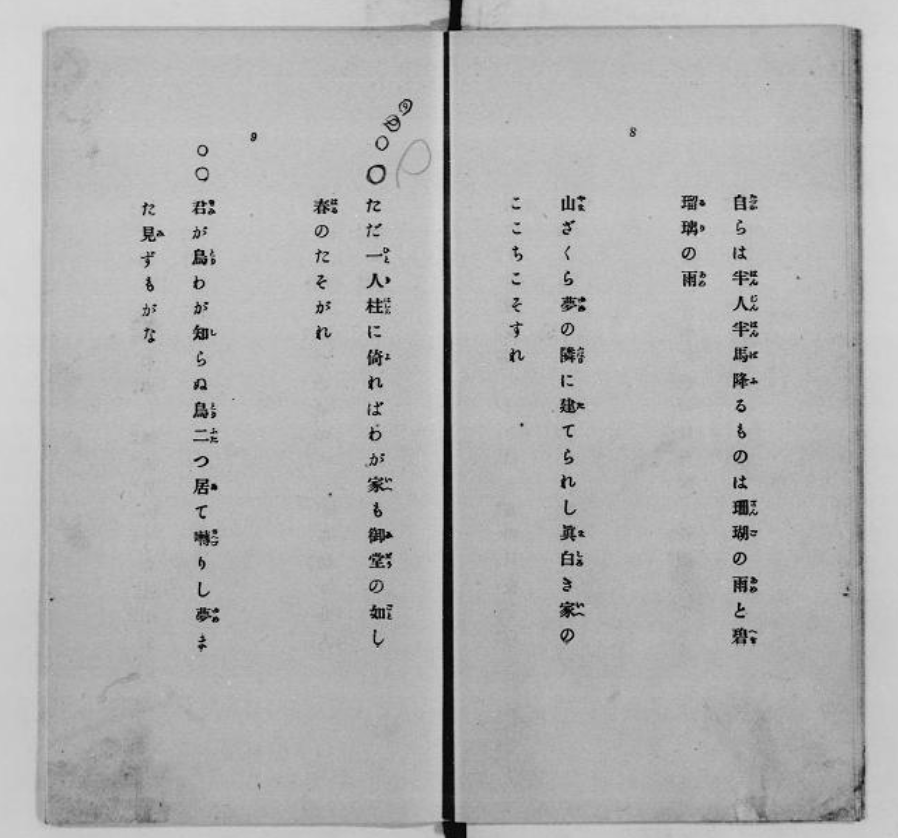 8
自らは半人半馬降るものは珊瑚の雨と碧
瑠璃の雨
山ざくら夢の隣に建てられし眞白き家の
ここちこそすれ
9
ただ一人柱に倚ればわが家も御堂の如し
春のたそがれ
君が鳥わが知らぬ鳥二つ居て囀りし夢ま
た見ずもがな